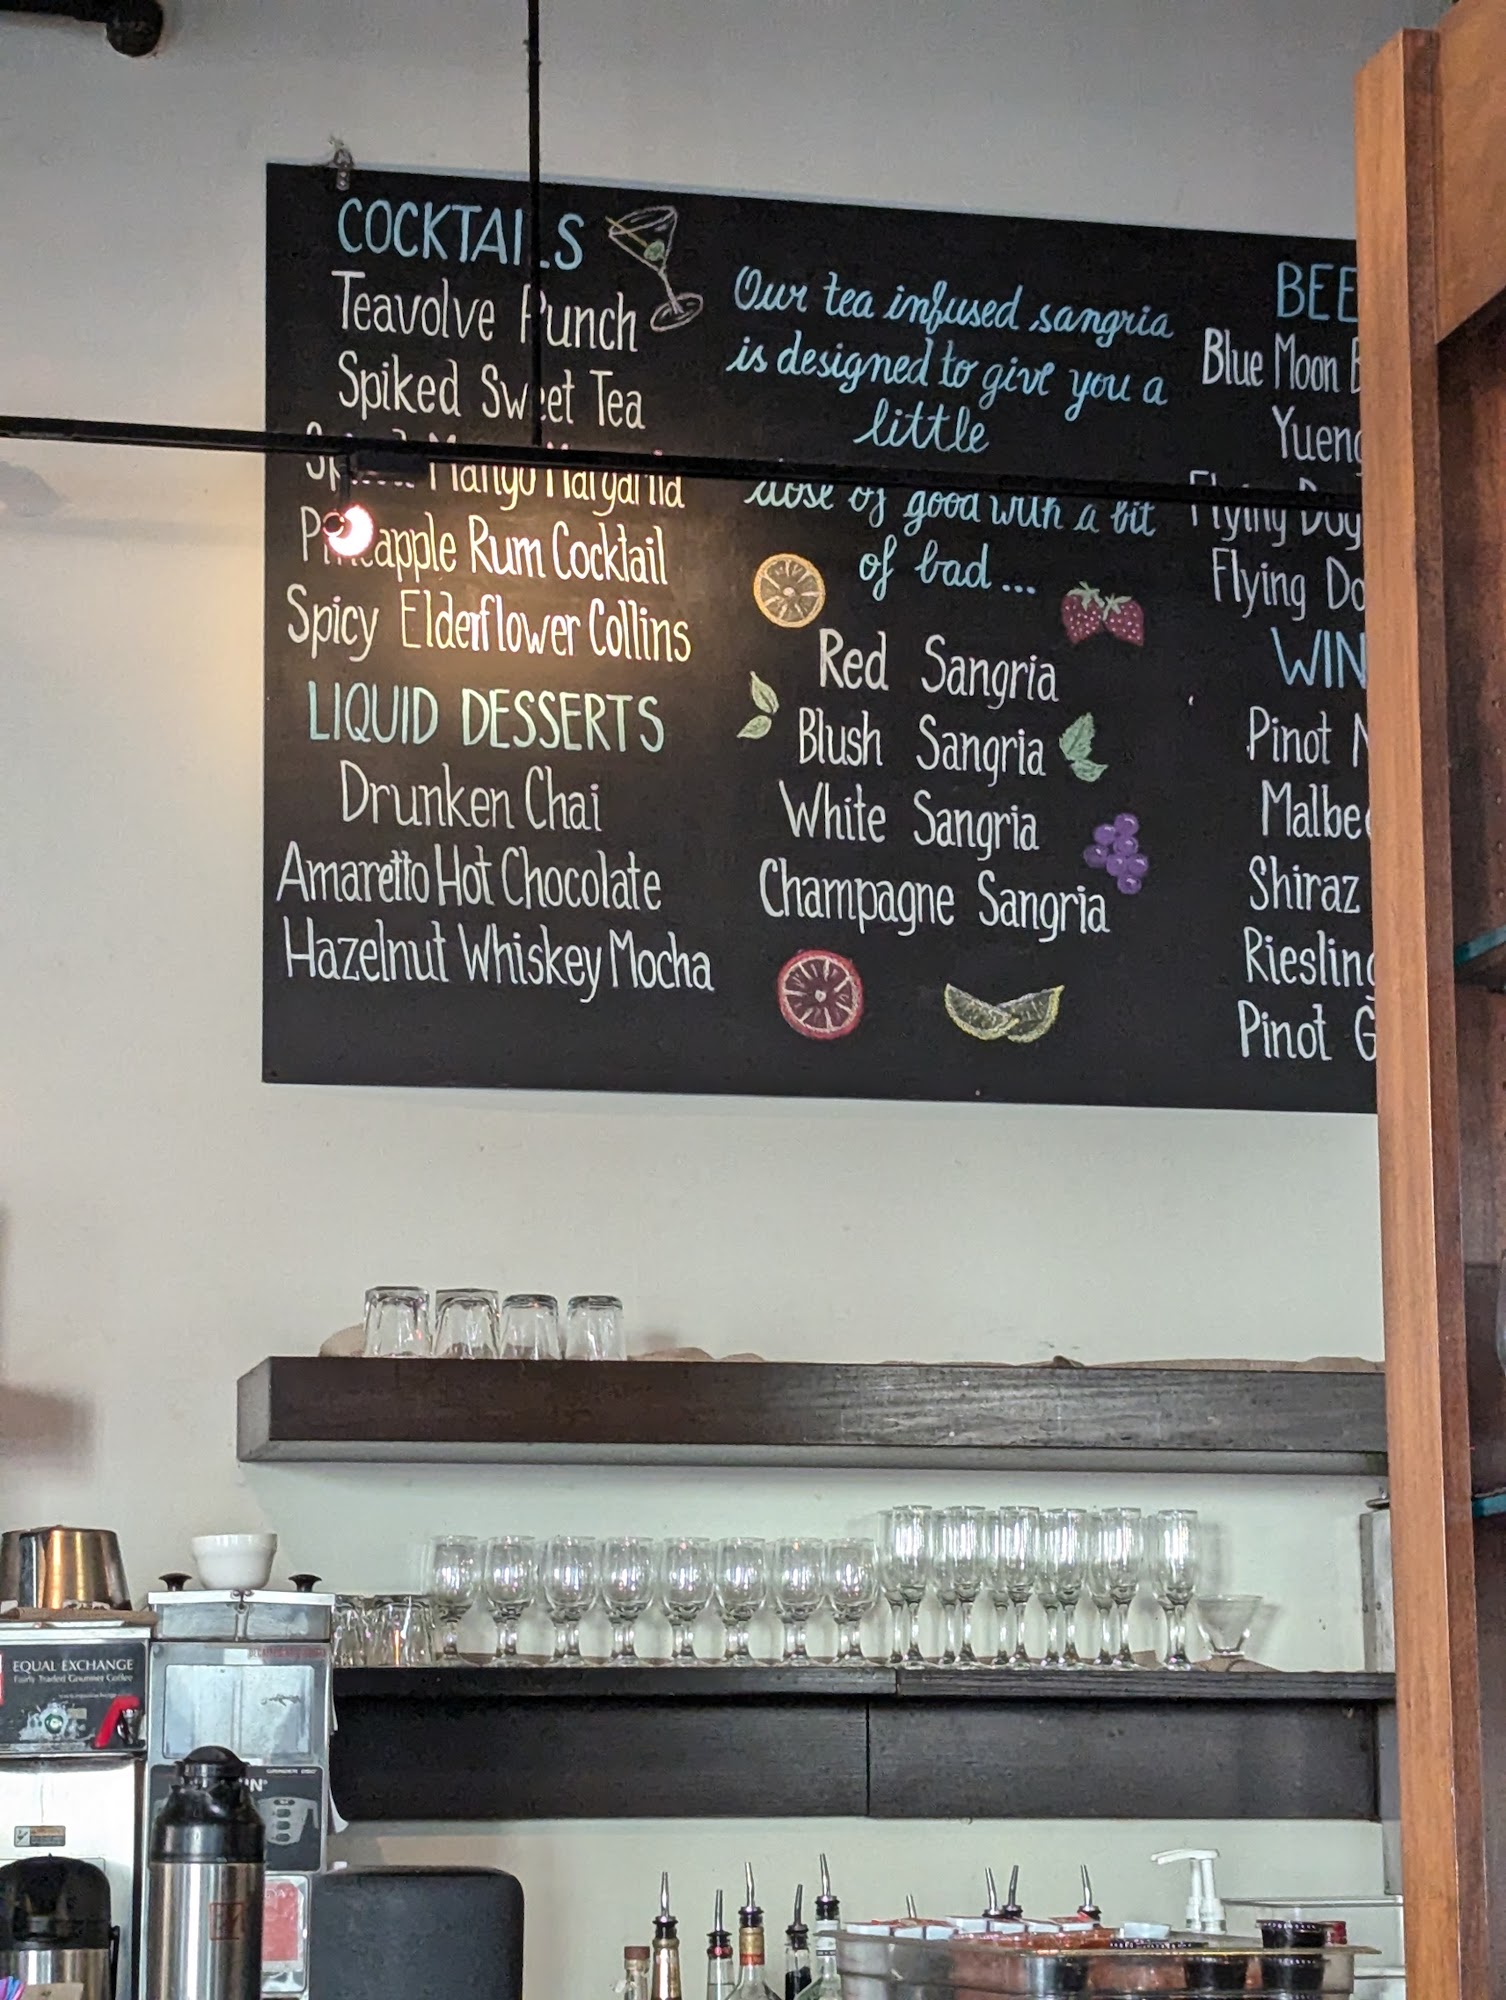 COCKTAILS
Teavolve Punch
Spiked Sweet Tea
Mango Margarita
Pineapple Rum Cocktail
Spicy Elderflower Collins
LIQUID DESSERTS
Drunken Chai
Amaretto Hot Chocolate
Hazelnut Whiskey Mocha
Our tea infused sangria
is designed to give you a
little
dose of good with a bit
of bad...
Red Sangria
Blush Sangria
White Sangria
Champagne Sangria
BEE
Blue Moon B
Yueng
Flying Dog
Flying Do
WIN
Pinot N
Malbec
Shiraz
Riesling
Pinot G
EQUAL EXCHANGE
Fairly Traded Gourmet Coffee